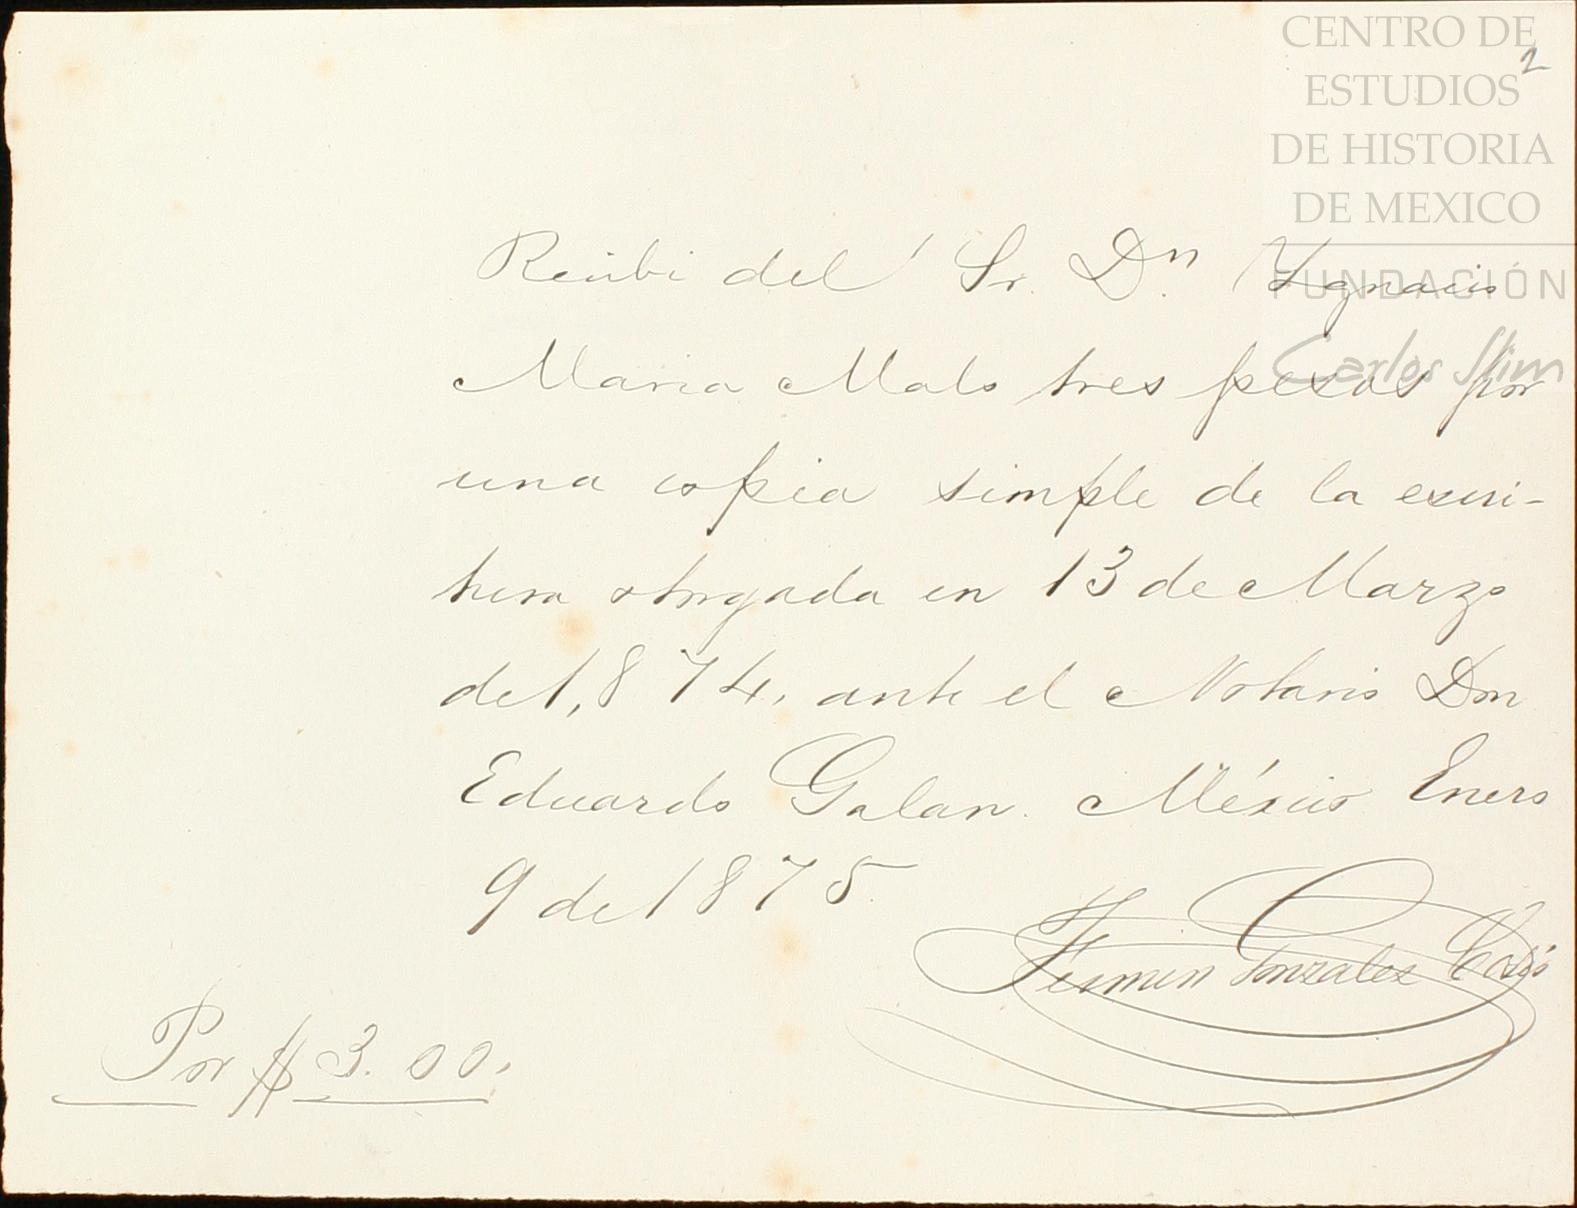 CENTRO DE
ESTUDIOS
DE HISTORIA
DE MEXICO
FUNDACIÓN
Carlos Slim
2
Recibi del Sr. Dn. Ygnacio
Maria Malo tres pesos por
una copia simple de la escri-
tura otorgada en 13 de Marzo
de 1,874. ante el Notario Don
Eduardo Galan. México Enero
9 de 1875.
Fermin Gonzalez
Por $ 3.00.